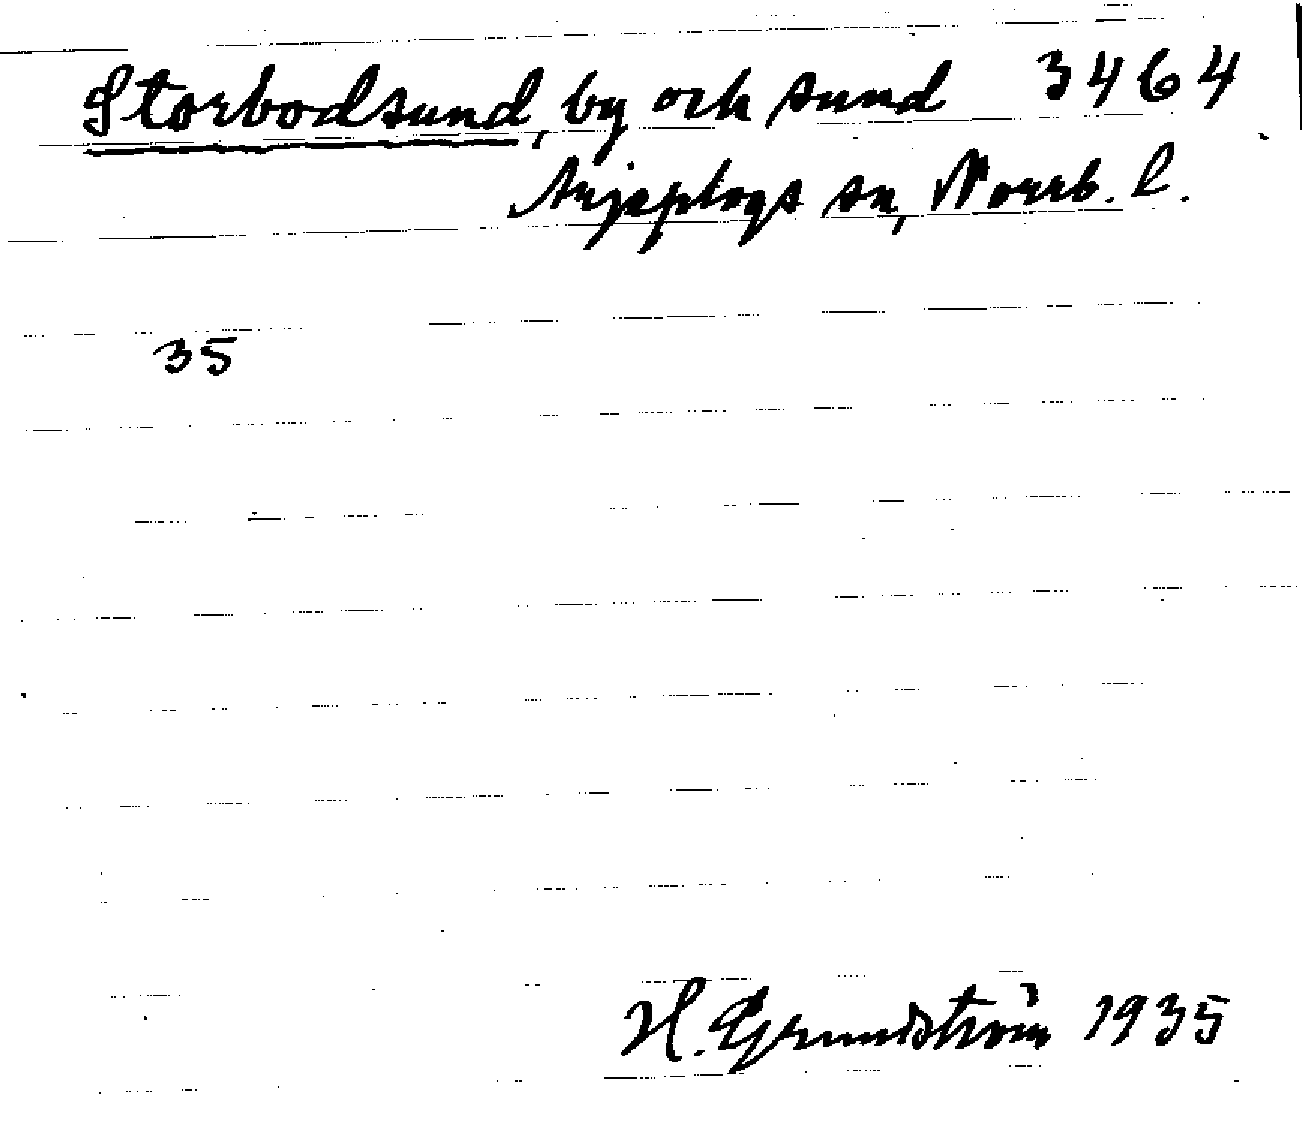 Storbodsund, by och sund 3464
Arjeplogs sn, Norrb. l.
35
H. Grundström 1935